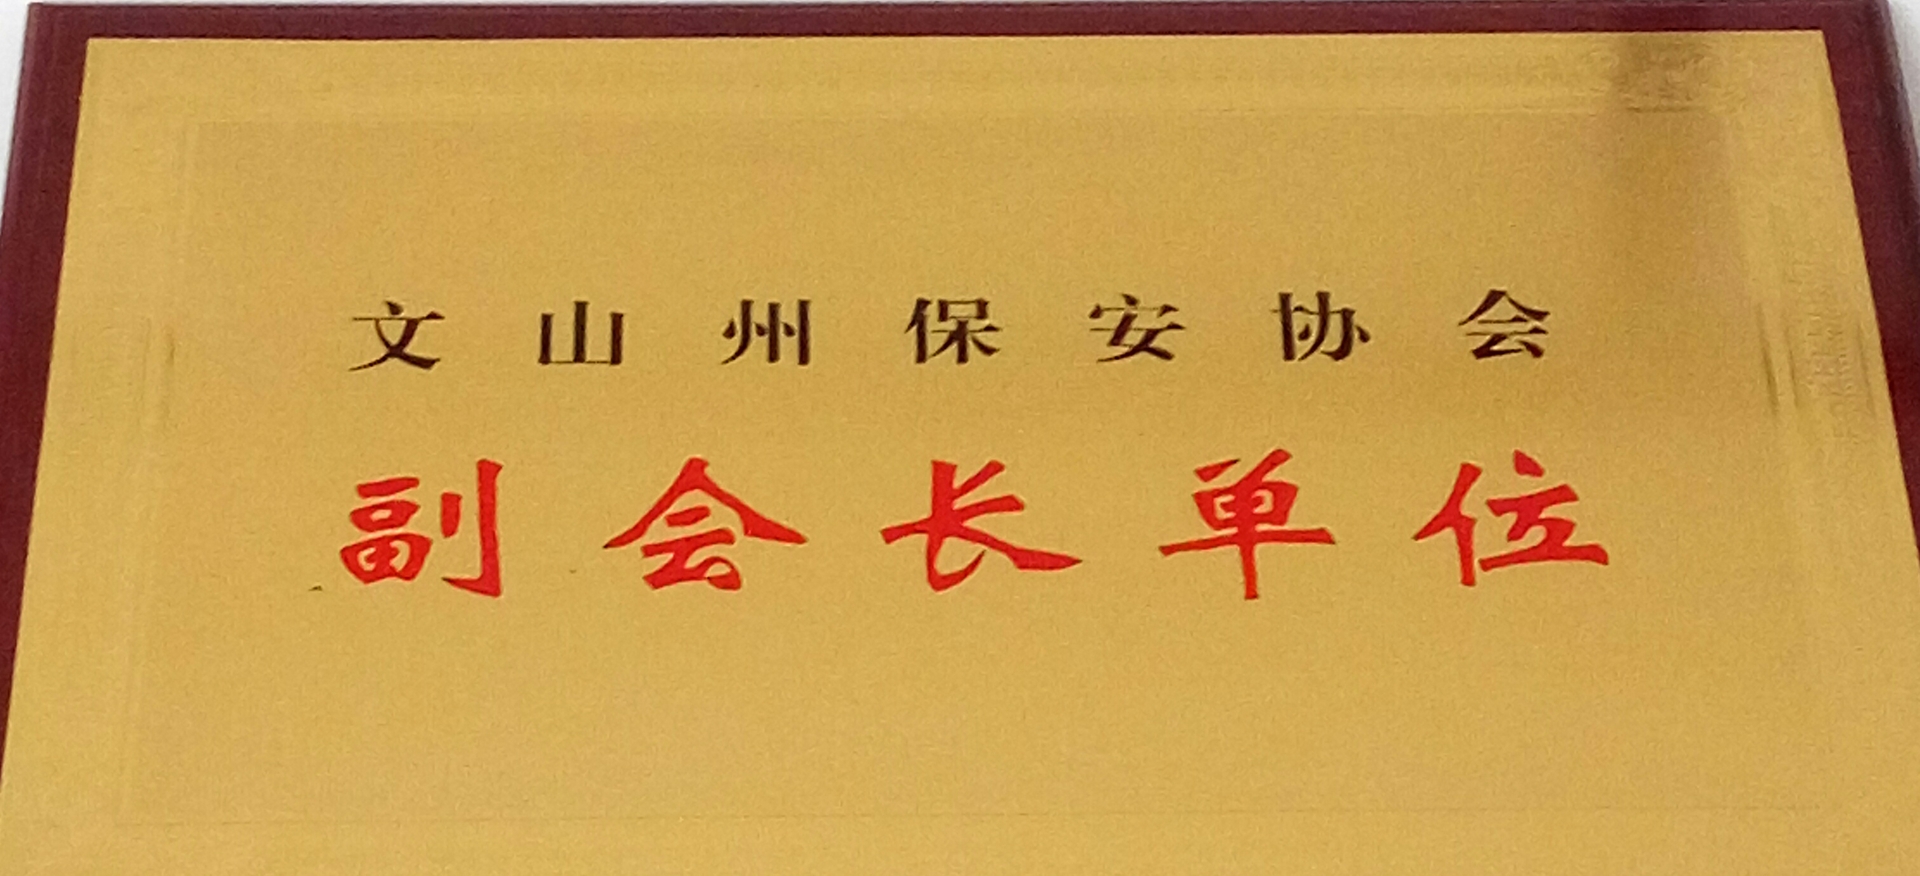 文山州保安协会
副会长单位